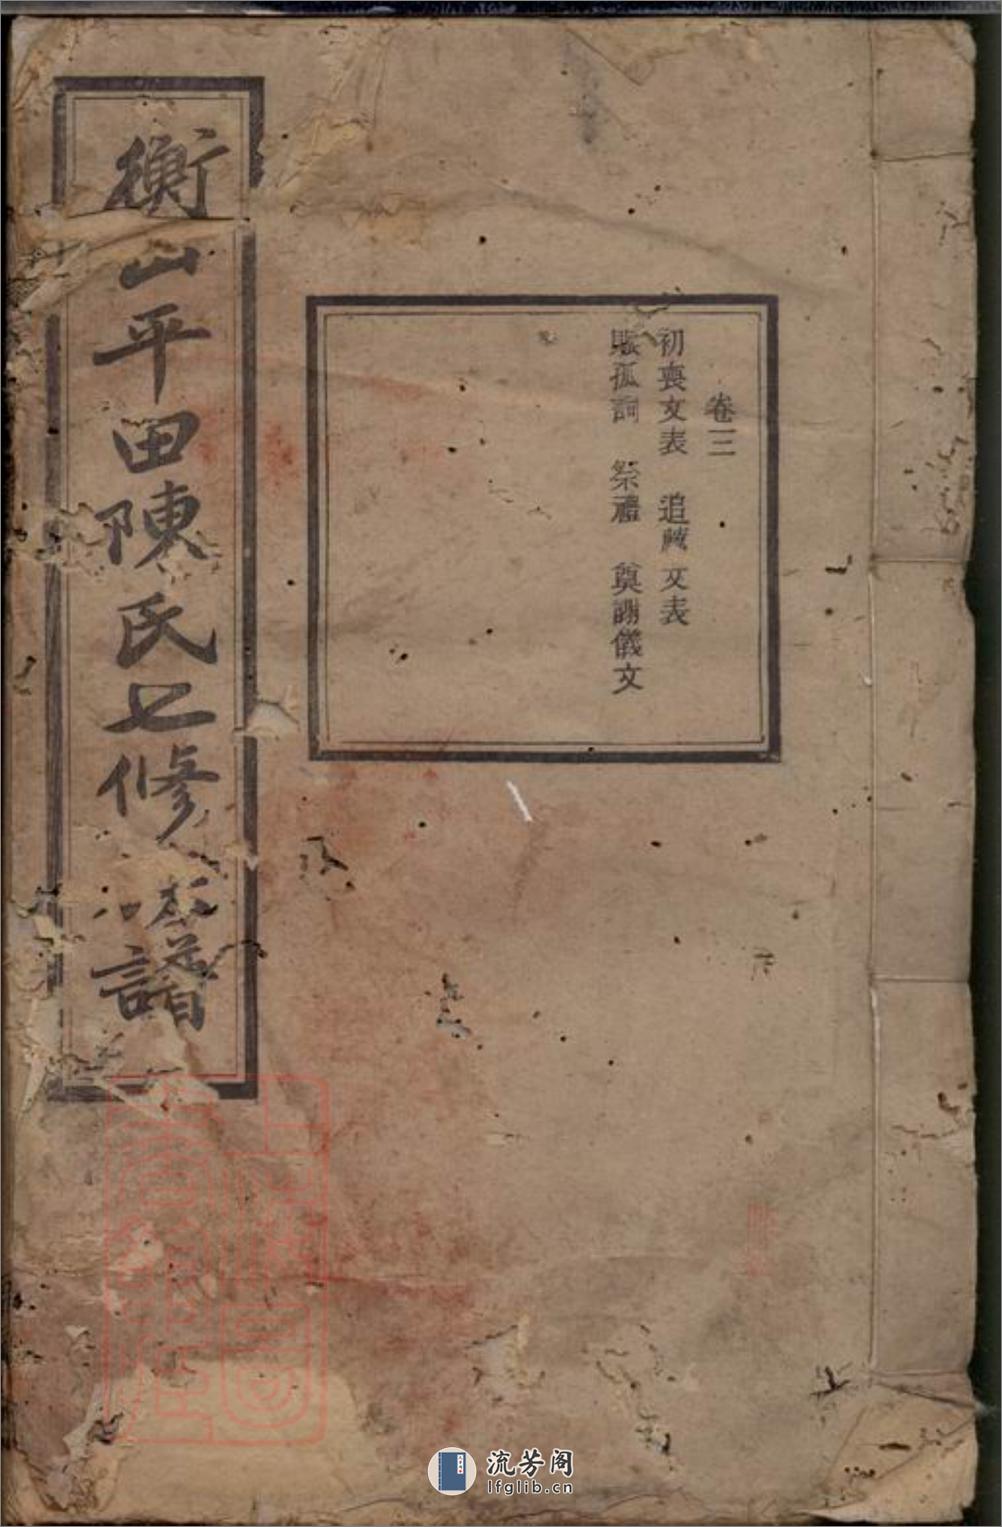 衡山平田陳氏七修譜
卷三
初喪文表 追薦文表
賑孤詞 祭禮 奠謝儀文
流芳阁
lfglib.cn